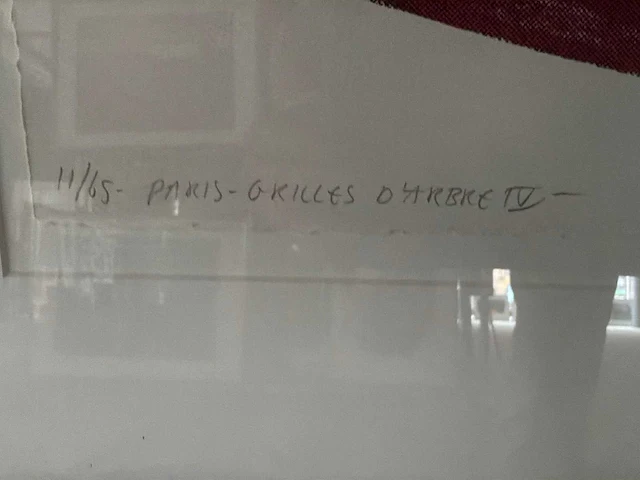 11/65- PARIS - GRILLES D'ARBRE IV -